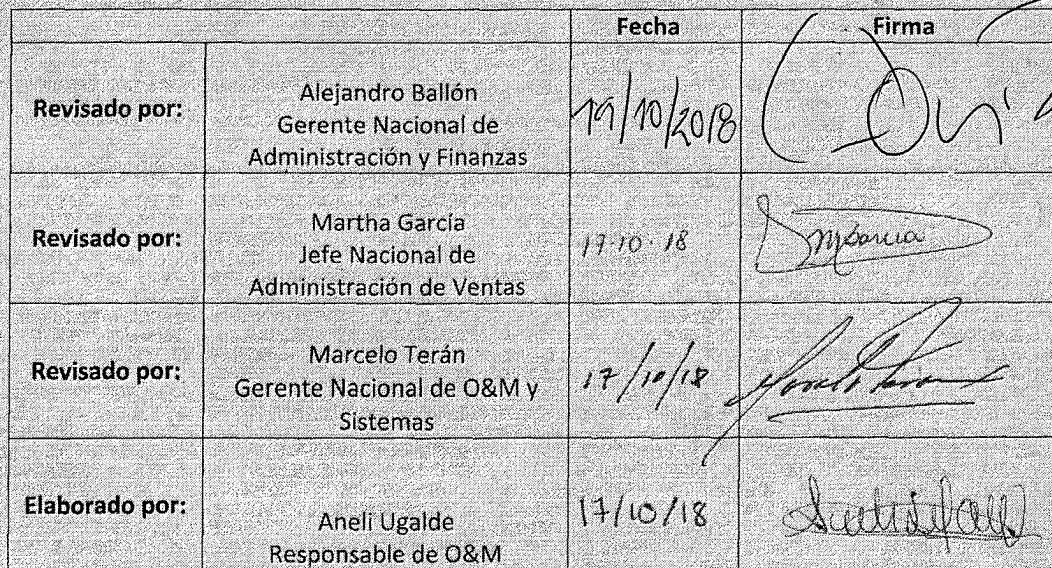 Fecha Firma
Revisado por: Alejandro Ballón
Gerente Nacional de
Administración y Finanzas
19/10/2018
Revisado por: Martha García
Jefe Nacional de
Administración de Ventas
17·10·18
MGarcia
Revisado por: Marcelo Terán
Gerente Nacional de O&M y
Sistemas
17/10/18
Elaborado por: Aneli Ugalde
Responsable de O&M
17/10/18